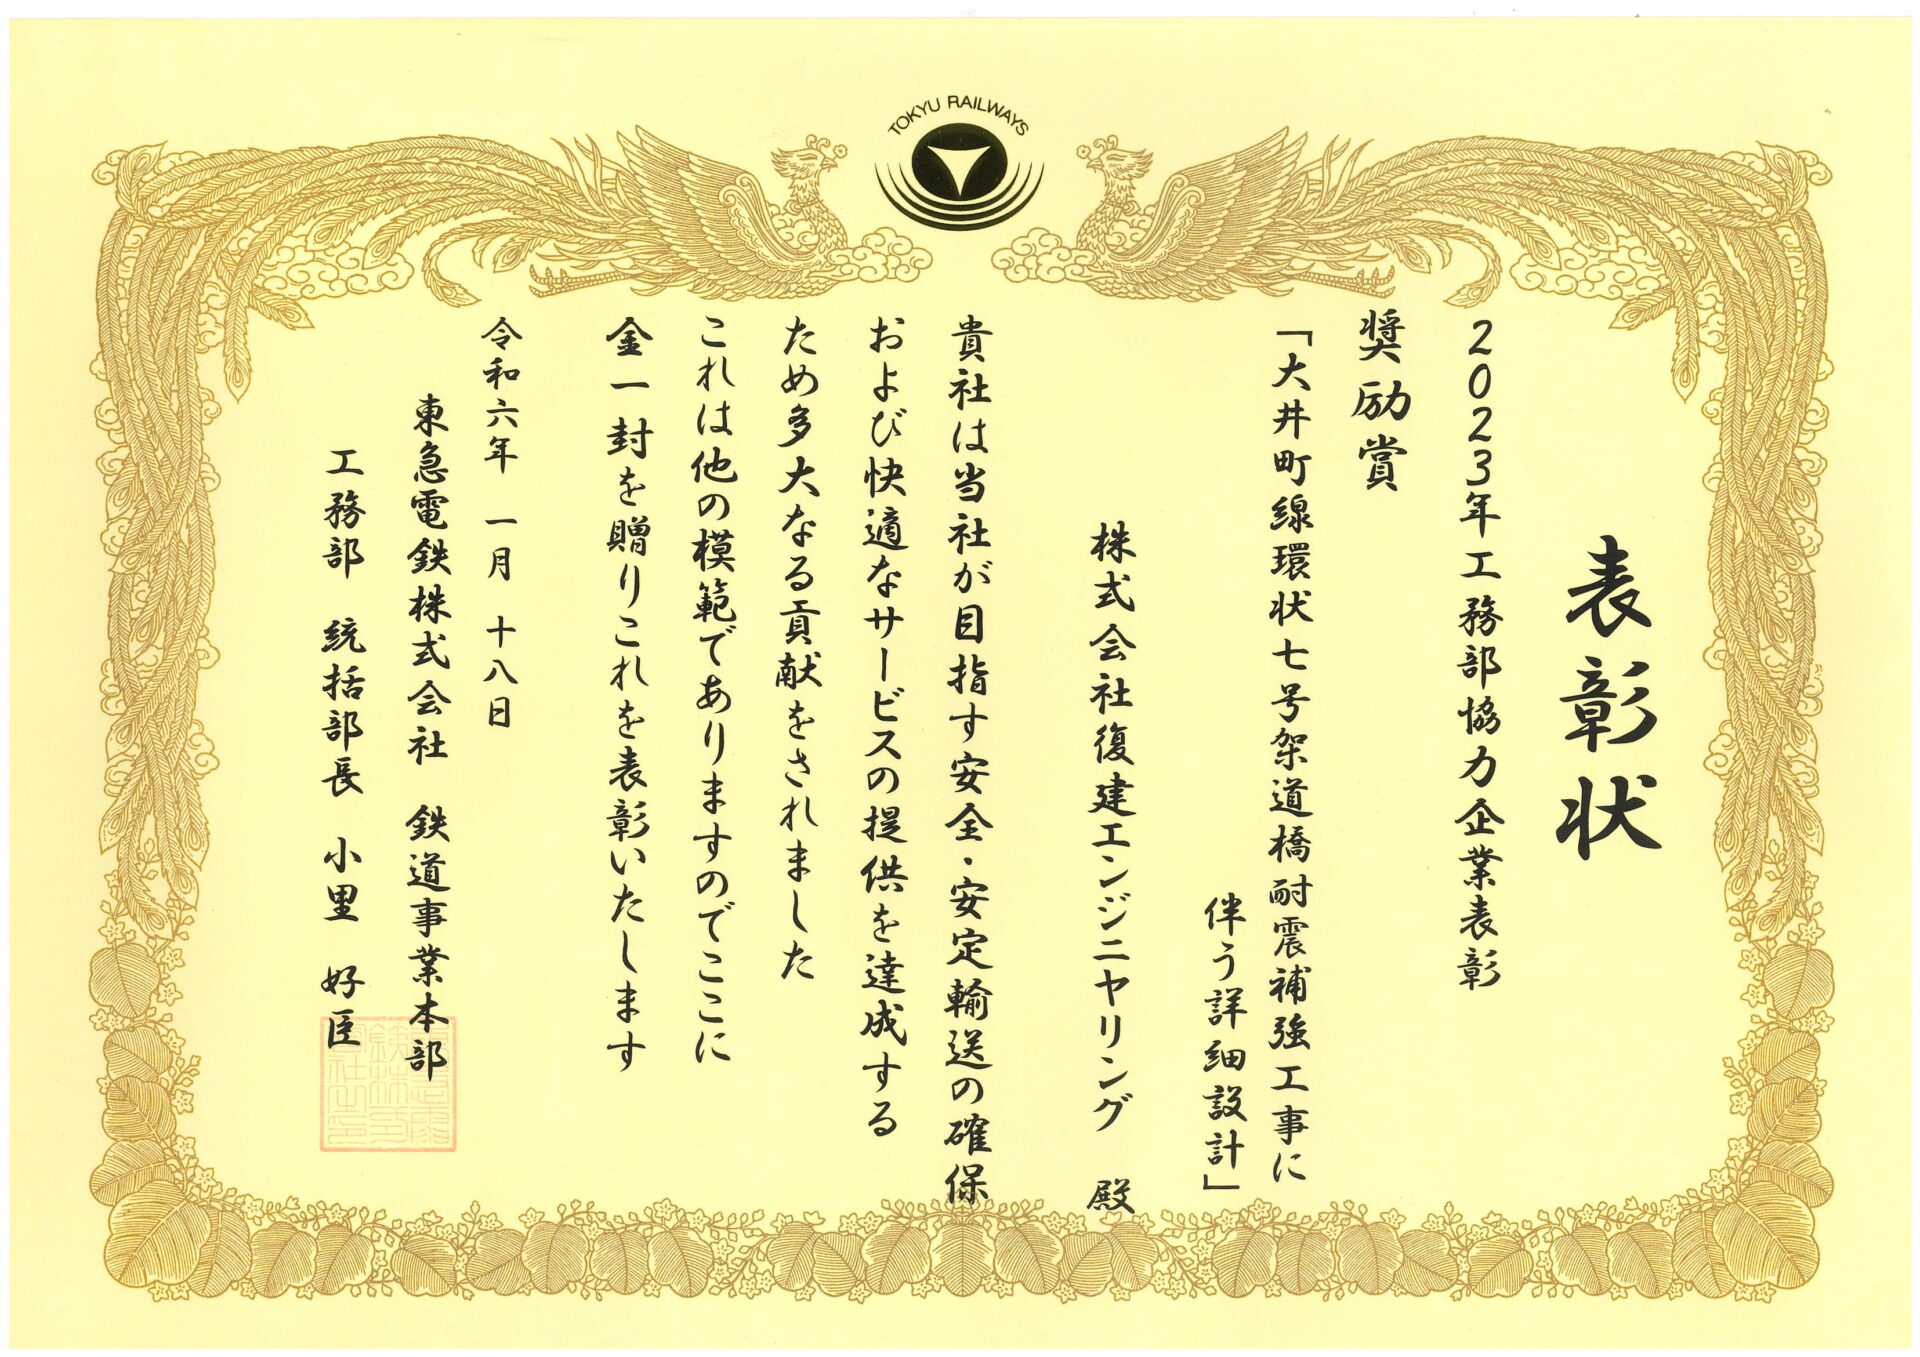 TOKYU RAILWAYS
表彰状
2023年工務部協力企業表彰
奨励賞
「大井町線環状七号架道橋耐震補強工事に
伴う詳細設計」
株式会社復建エンジニヤリング 殿
貴社は当社が目指す安全・安定輸送の確保
および快適なサービスの提供を達成する
ため多大なる貢献をされました
これは他の模範でありますのでここに
金一封を贈りこれを表彰いたします
令和六年 一月 十八日
東急電鉄株式会社 鉄道事業本部
工務部 統括部長 小里 好臣